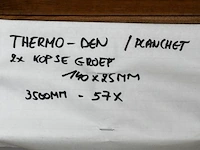 THERMO-DEN /PLANCHET
2x KOPSE GROEF
140x25MM
3500MM - 57X